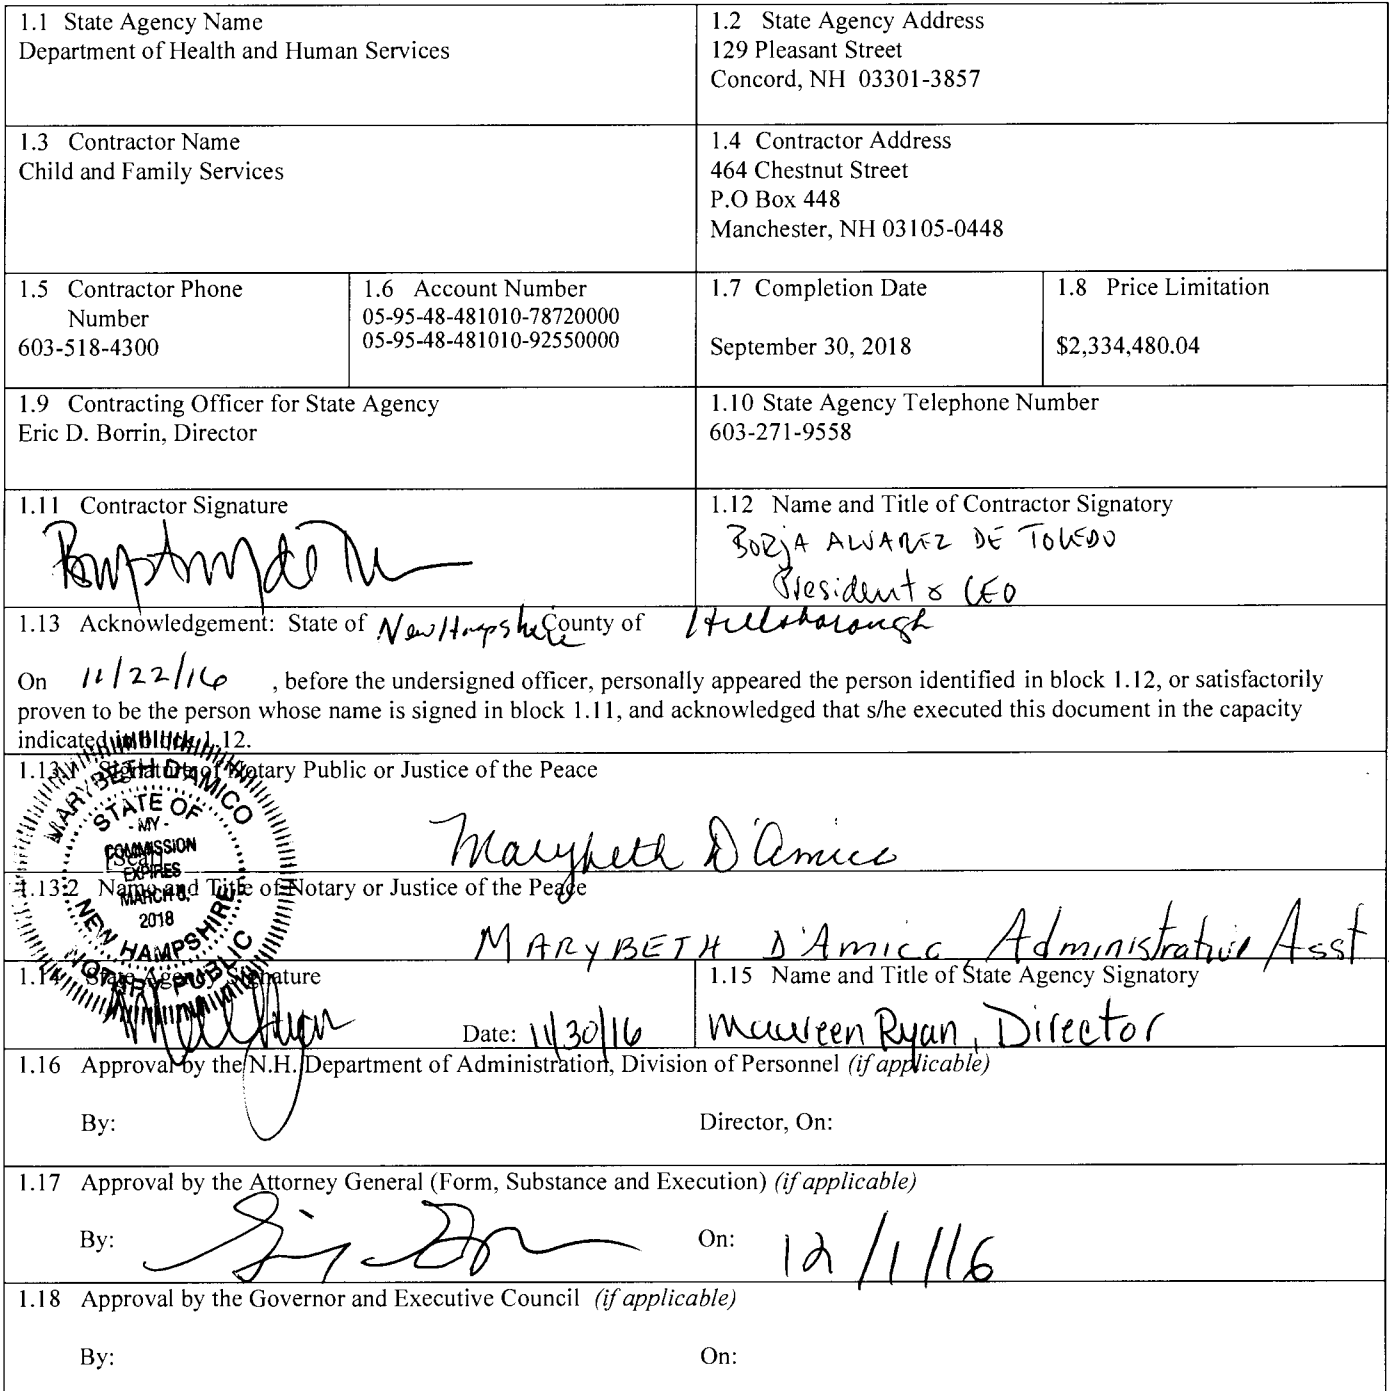 1.1 State Agency Name
Department of Health and Human Services
1.2 State Agency Address
129 Pleasant Street
Concord, NH 03301-3857
1.3 Contractor Name
Child and Family Services
1.4 Contractor Address
464 Chestnut Street
P.O Box 448
Manchester, NH 03105-0448
1.5 Contractor Phone
Number
603-518-4300
1.6 Account Number
05-95-48-481010-78720000
05-95-48-481010-92550000
1.7 Completion Date
September 30, 2018
1.8 Price Limitation
$2,334,480.04
1.9 Contracting Officer for State Agency
Eric D. Borrin, Director
1.10 State Agency Telephone Number
603-271-9558
1.11 Contractor Signature
1.12 Name and Title of Contractor Signatory
BORJA ALVAREZ DE TOLEDO
President & CEO
1.13 Acknowledgement: State of New Hampshire County of Hillsborough
On 11/22/16 , before the undersigned officer, personally appeared the person identified in block 1.12, or satisfactorily
proven to be the person whose name is signed in block 1.11, and acknowledged that s/he executed this document in the capacity
indicated in block 1.12.
1.13.1 Signature of Notary Public or Justice of the Peace
MARYBETH D'AMICO
STATE OF
- MY -
COMMISSION
[Seal]
EXPIRES
MARCH 8,
2018
NEW HAMPSHIRE
NOTARY PUBLIC
Marybeth D'Amico
1.13.2 Name and Title of Notary or Justice of the Peace
MARYBETH D'Amico Administrative Asst
1.14 State Agency Signature
Date: 11/30/16
1.15 Name and Title of State Agency Signatory
Maureen Ryan, Director
1.16 Approval by the N.H. Department of Administration, Division of Personnel (if applicable)
By:
Director, On:
1.17 Approval by the Attorney General (Form, Substance and Execution) (if applicable)
By:
On: 12/1/16
1.18 Approval by the Governor and Executive Council (if applicable)
By:
On: